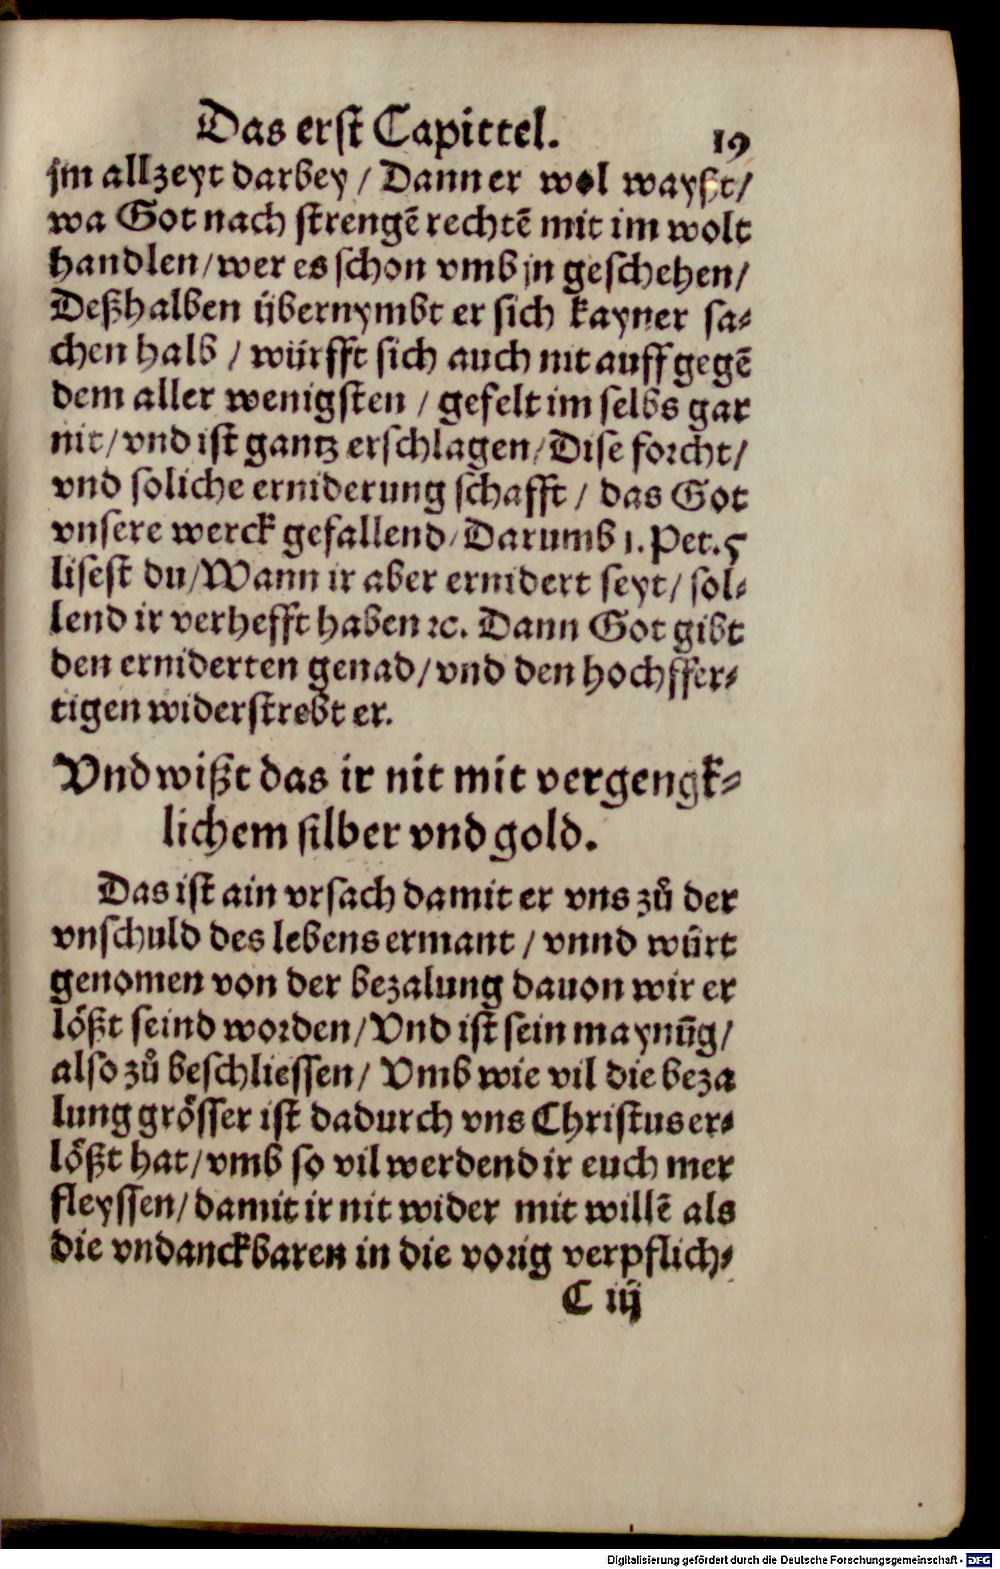 Das erst Capittel. 19
jm allzeyt darbey / Dann er wol wayßt /
wa Got nach strengē rechtē mit im wolt
handlen / wer es schon vmb jn geschehen /
Deßhalben übernymbt er sich kayner sa⸗
chen halb / würfft sich auch nit auff gegē
dem aller wenigsten / gefelt im selbs gar
nit / vnd ist gantz erschlagen / Dise forcht /
vnd soliche erniderung schafft / das Got
vnsere werck gefallend / Darumb 1. Pet. 5
lisest du / Wann ir aber ernidert seyt / sol⸗
lend ir verhefft haben ꝛc. Dann Got gibt
den erniderten genad / vnd den hochffer⸗
tigen widerstrebt er.
Vnd wißt das ir nit mit vergengk⸗
lichem silber vnd gold.
Das ist ain vrsach damit er vns zů der
vnschuld des lebens ermant / vnnd würt
genomen von der bezalung dauon wir er
lößt seind worden / Vnd ist sein maynūg /
also zů beschliessen / Vmb wie vil die beza
lung grösser ist dadurch vns Christus er⸗
lößt hat / vmb so vil werdend ir euch mer
fleyssen / damit ir nit wider mit willē als
die vndanckbaren in die vorig verpflich⸗
C iij
Digitalisierung gefördert durch die Deutsche Forschungsgemeinschaft - DFG